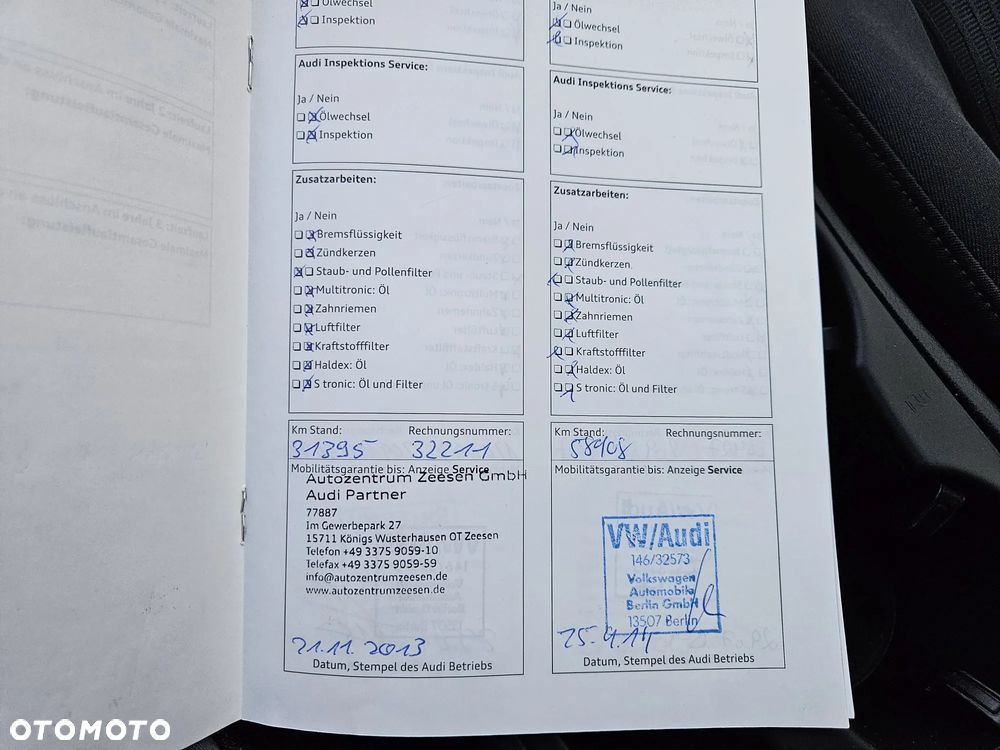 Ölwechsel
Inspektion
Audi Inspektions Service:
Ja / Nein
Ölwechsel
Inspektion
Zusatzarbeiten:
Ja / Nein
Bremsflüssigkeit
Zündkerzen
Staub- und Pollenfilter
Multitronic: Öl
Zahnriemen
Luftfilter
Kraftstofffilter
Haldex: Öl
S tronic: Öl und Filter
Km Stand: Rechnungsnummer:
31395 32211
Mobilitätsgarantie bis: Anzeige Service
Autozentrum Zeesen GmbH
Audi Partner
77887
Im Gewerbepark 27
15711 Königs Wusterhausen OT Zeesen
Telefon +49 3375 9059-10
Telefax +49 3375 9059-59
info@autozentrumzeesen.de
www.autozentrumzeesen.de
21.11.2013
Datum, Stempel des Audi Betriebs
Ja / Nein
Ölwechsel
Inspektion
Audi Inspektions Service:
Ja / Nein
Ölwechsel
Inspektion
Zusatzarbeiten:
Ja / Nein
Bremsflüssigkeit
Zündkerzen
Staub- und Pollenfilter
Multitronic: Öl
Zahnriemen
Luftfilter
Kraftstofffilter
Haldex: Öl
S tronic: Öl und Filter
Km Stand: Rechnungsnummer:
58908
Mobilitätsgarantie bis: Anzeige Service
VW/Audi
146/32573
Volkswagen
Automobile
Berlin GmbH
13507 Berlin
Datum, Stempel des Audi Betriebs
OTOMOTO